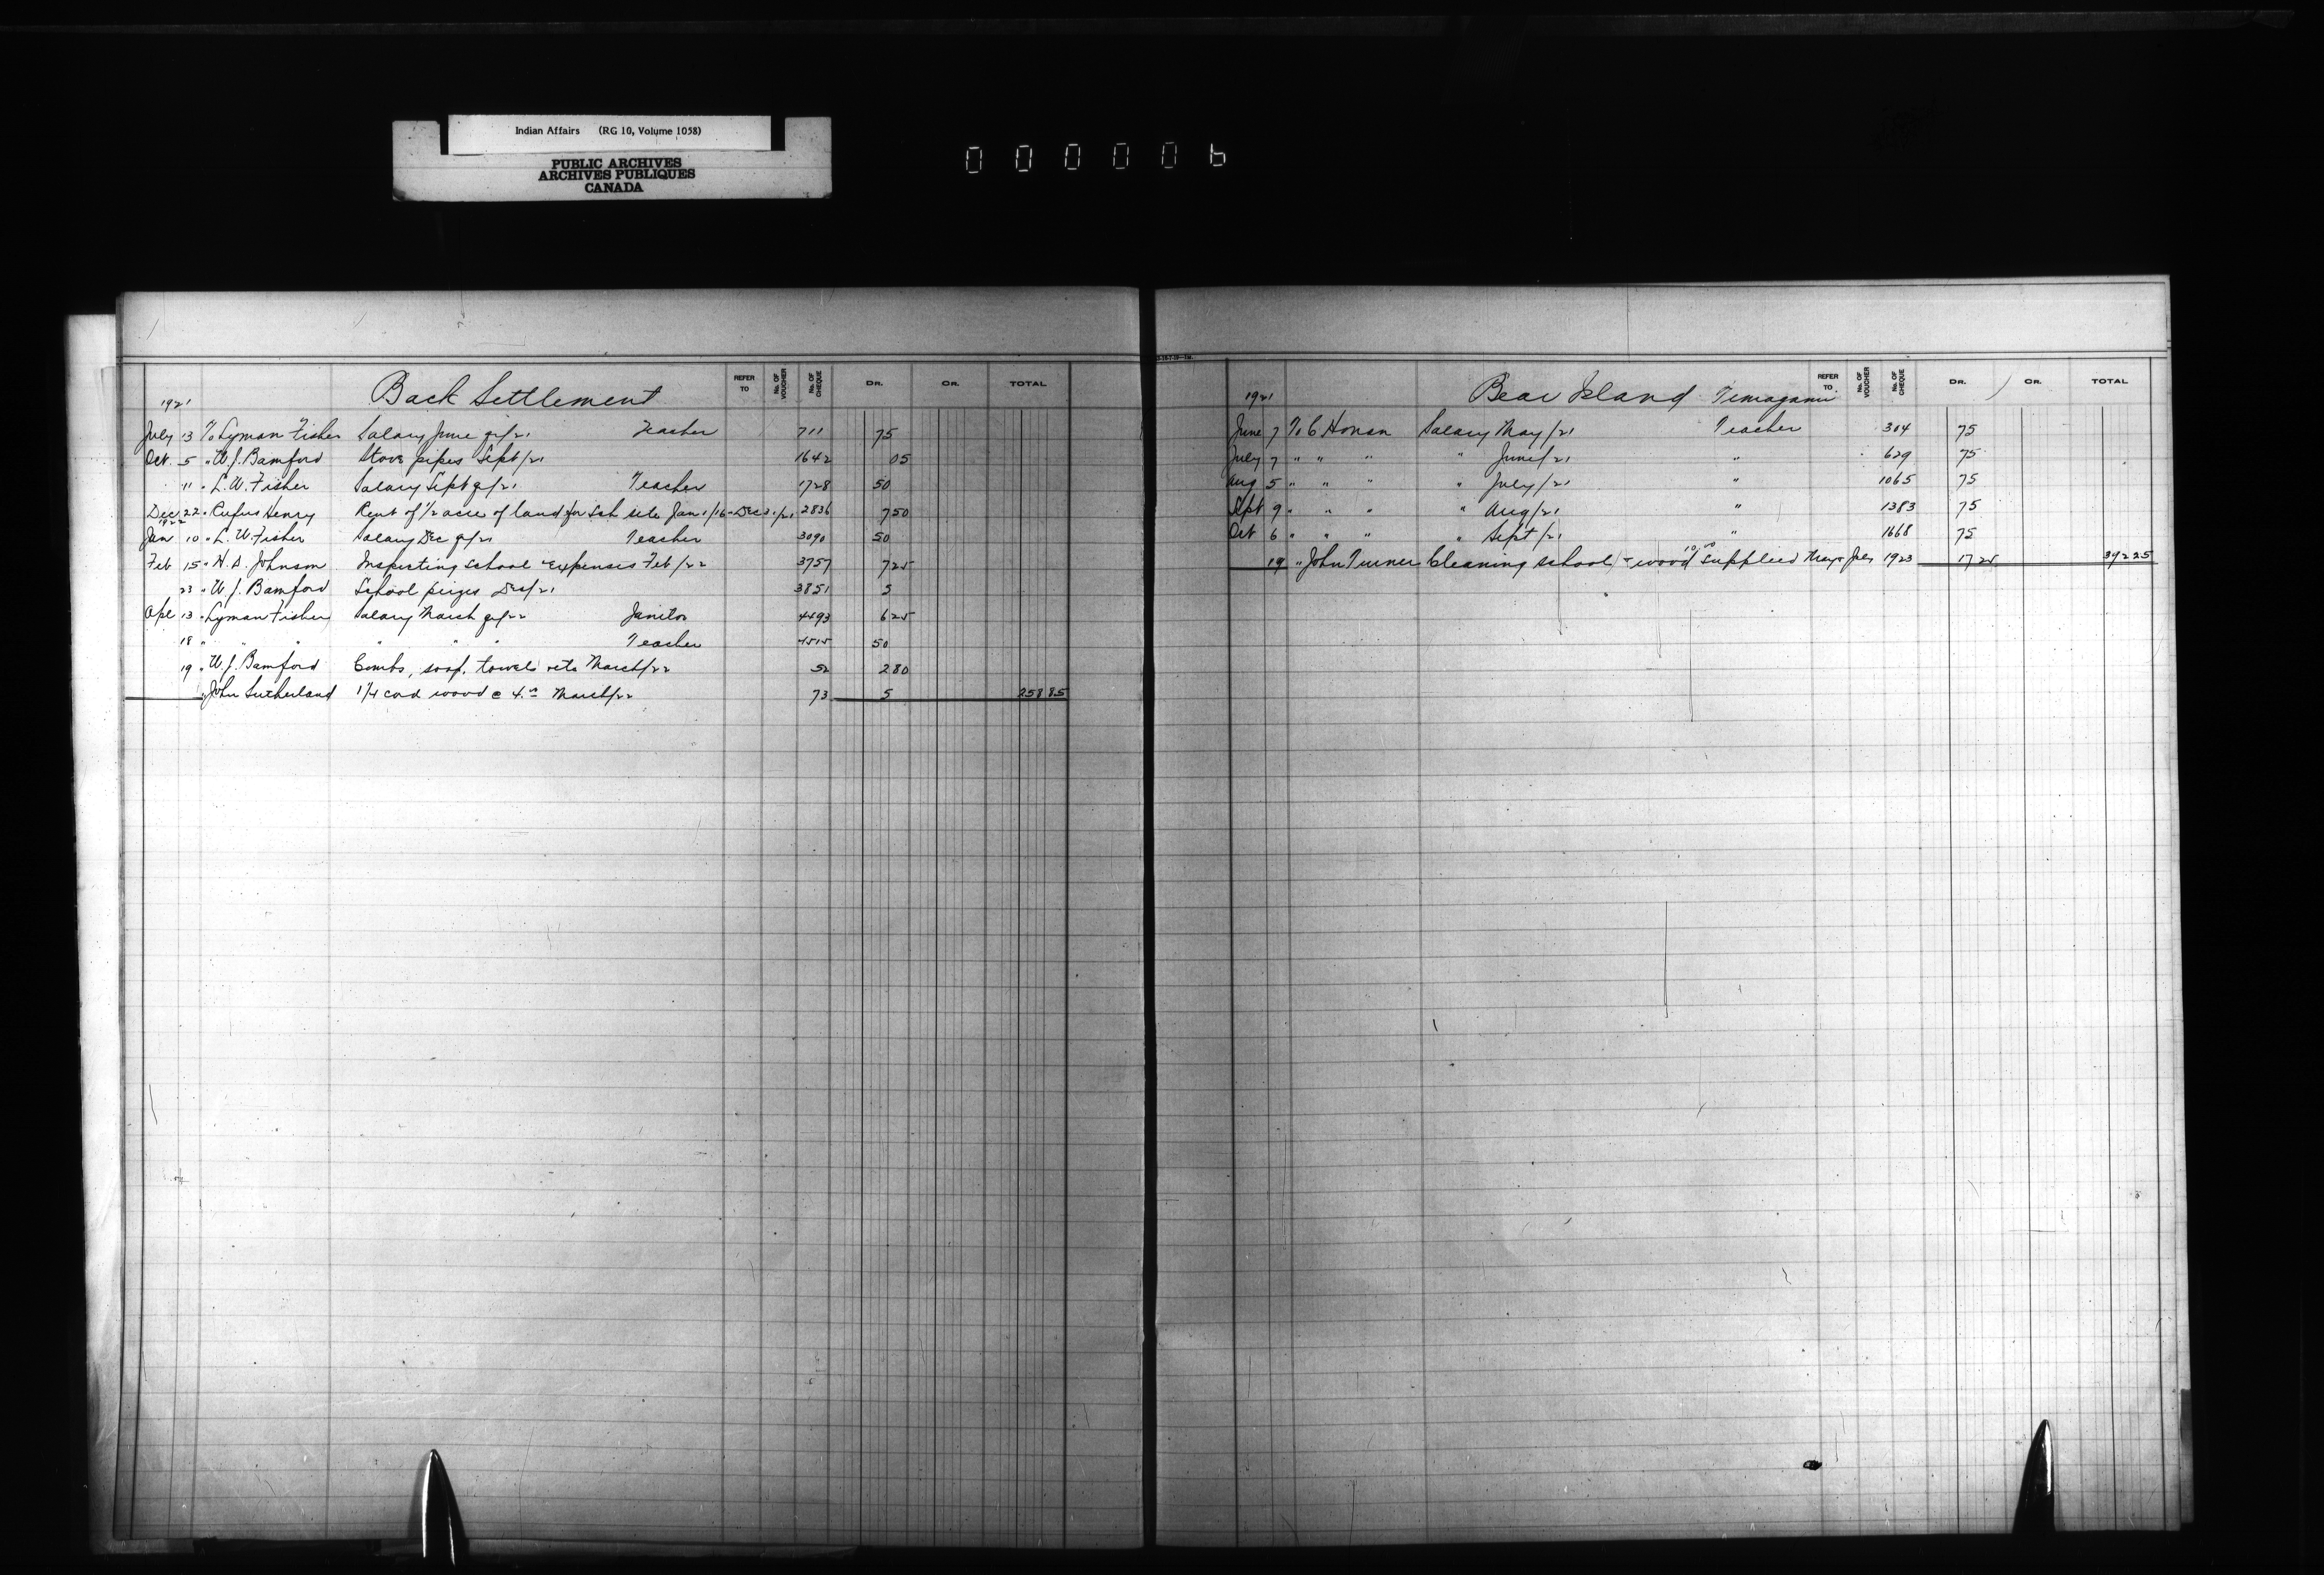 Indian Affairs (RG 10, Volume 1058)
PUBLIC ARCHIVES
ARCHIVES PUBLIQUES
CANADA
000006
Back Settlement
REFER TO No. OF VOUCHER No. OF CHEQUE DR. CR. TOTAL
1921
July 13 To Lyman Fisher Salary June qr/21 Teacher 711 75
Oct. 5 " W. J. Bamford Stove pipes Sept/21 1642 05
" 11 " L. W. Fisher Salary Sept qr/21 Teacher 1728 50
Dec 22 " Rufus Henry Rent of 1/2 acre of land for Sch site Jan 1/16 - Dec 31/21 2836 7 50
1922
Jan 10 " L. W. Fisher Salary Dec qr/21 Teacher 3090 50
Feb 15 " H. A. Johnson Inspecting school & expenses Feb/22 3757 7 25
23 " W. J. Bamford School prizes Dec/21 3851 5
Apl 13 " Lyman Fisher Salary March qr/22 Janitor 4493 6 25
18 " " " " " " Teacher 4515 50
19 " W. J. Bamford Combs, soap, towels etc March/22 52 2 80
" John Sutherland 1 1/4 cord wood @ 4.00 March/22 73 5 258 85
Bear Island Temagami
REFER TO No. OF VOUCHER No. OF CHEQUE DR. CR. TOTAL
1921
June 7 To C Honan Salary May/21 Teacher 304 75
July 7 " " " " June/21 " 629 75
Aug 5 " " " " July/21 " 1065 75
Sept 9 " " " " Aug/21 " 1383 75
Oct 6 " " " " Sept/21 " 1668 75
19 " John Turner Cleaning school & wood supplied 1923 17 25 392 25